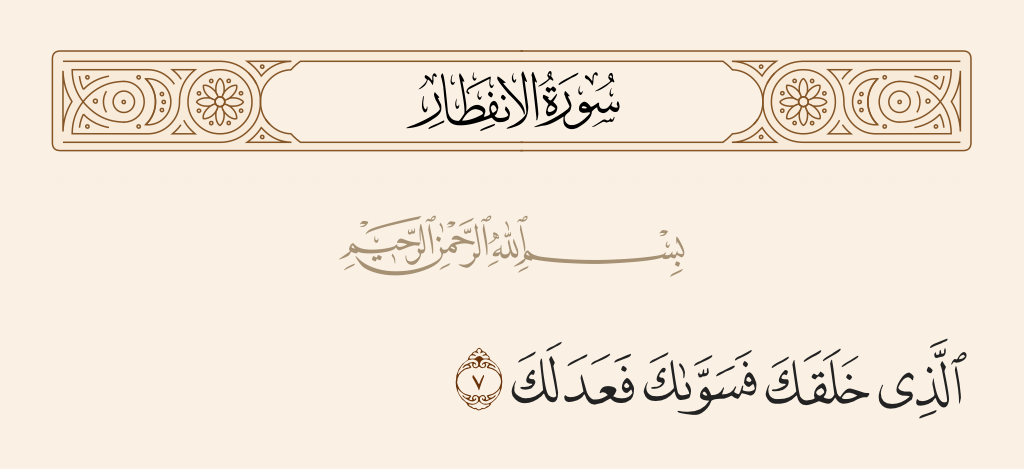 سُورَةُ الِانفِطَارِ
بِسْمِ ٱللَّهِ ٱلرَّحْمَٰنِ ٱلرَّحِيمِ
ٱلَّذِى خَلَقَكَ فَسَوَّىٰكَ فَعَدَلَكَ ٧